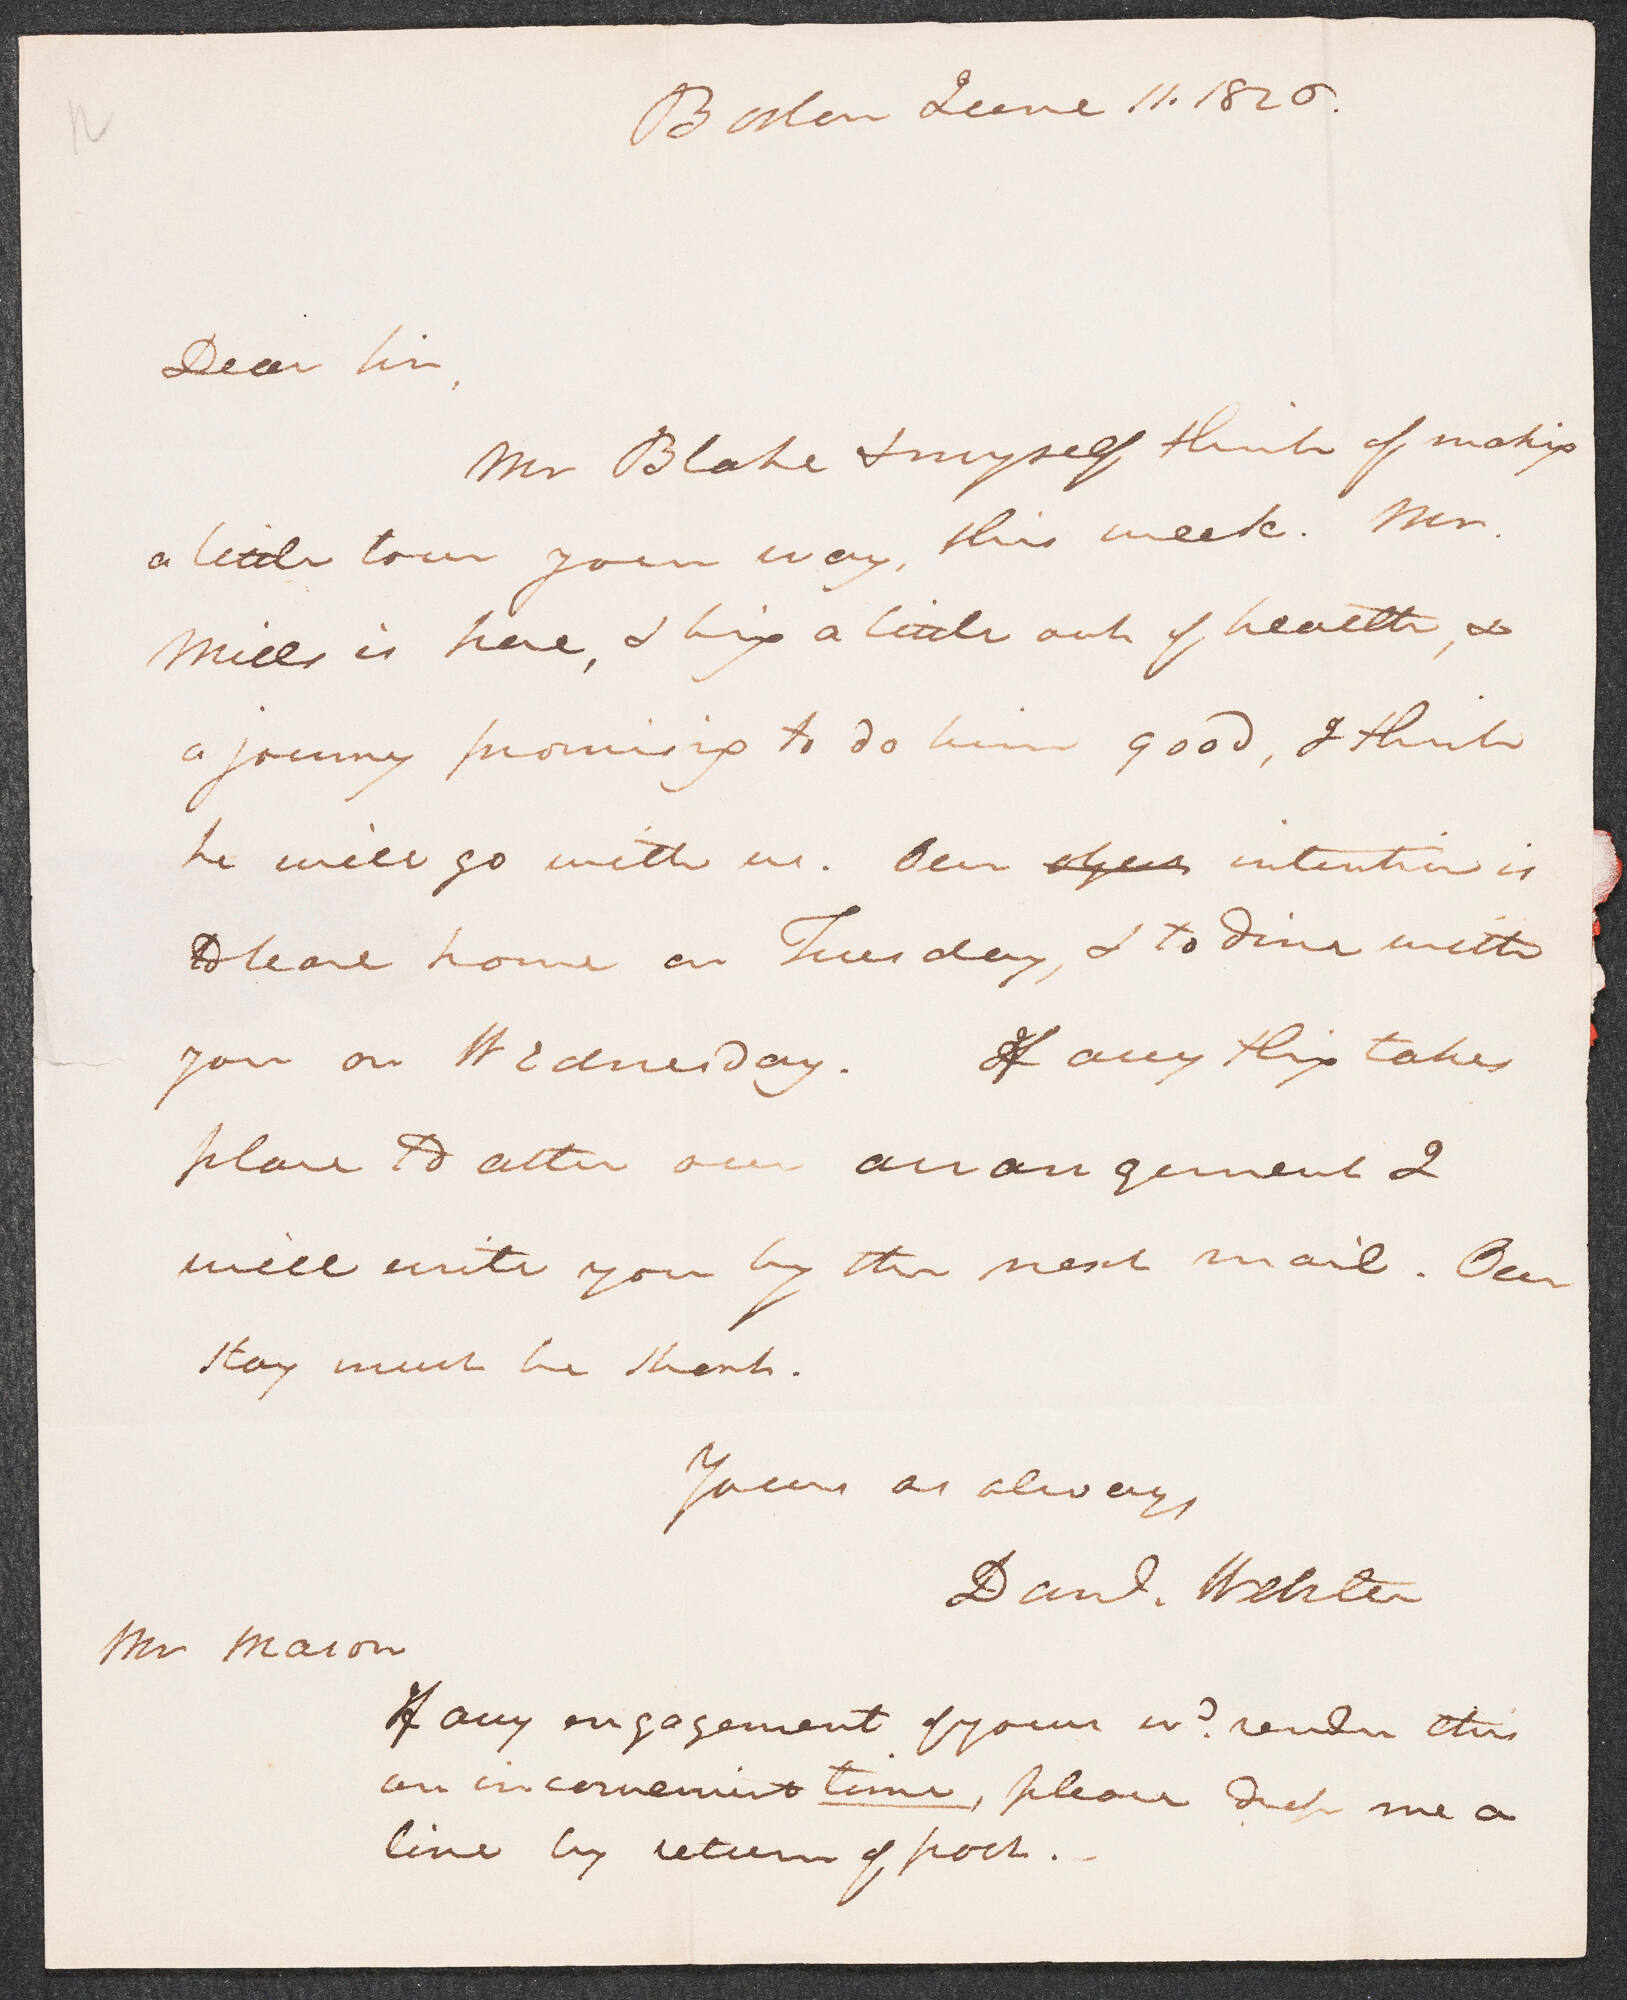 Boston June 11. 1826.
Dear Sir,
Mr Blake & myself think of making
a little tour your way, this week. Mr.
Mills is here, & being a little out of health, &
a journey promising to do him good, I think
he will go with us. Our intention is
to leave home on Tuesday, & to dine with
you on Wednesday. If any thing takes
place to alter our arrangement I
will write you by the next mail. Our
stay must be short.
Yours as always,
Danl. Webster
Mr Mason
If any engagement of yours wd. render this
an inconvenient time, please drop me a
line by return of post. -